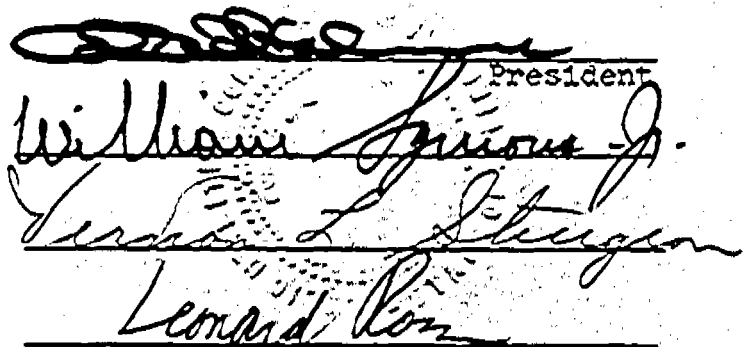 President
William Symons Jr.
Vernon L Sturgeon
Leonard Ross